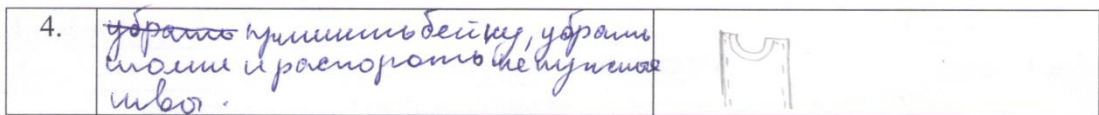 4. убрать пришить бейку, убрать
и распороть не нужные
швы.